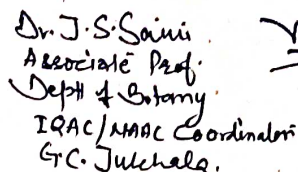 Dr. J. S. Saini
Associate Prof.
Deptt of Botany
IQAC/NAAC Coordinator
G.C. Jukhala.